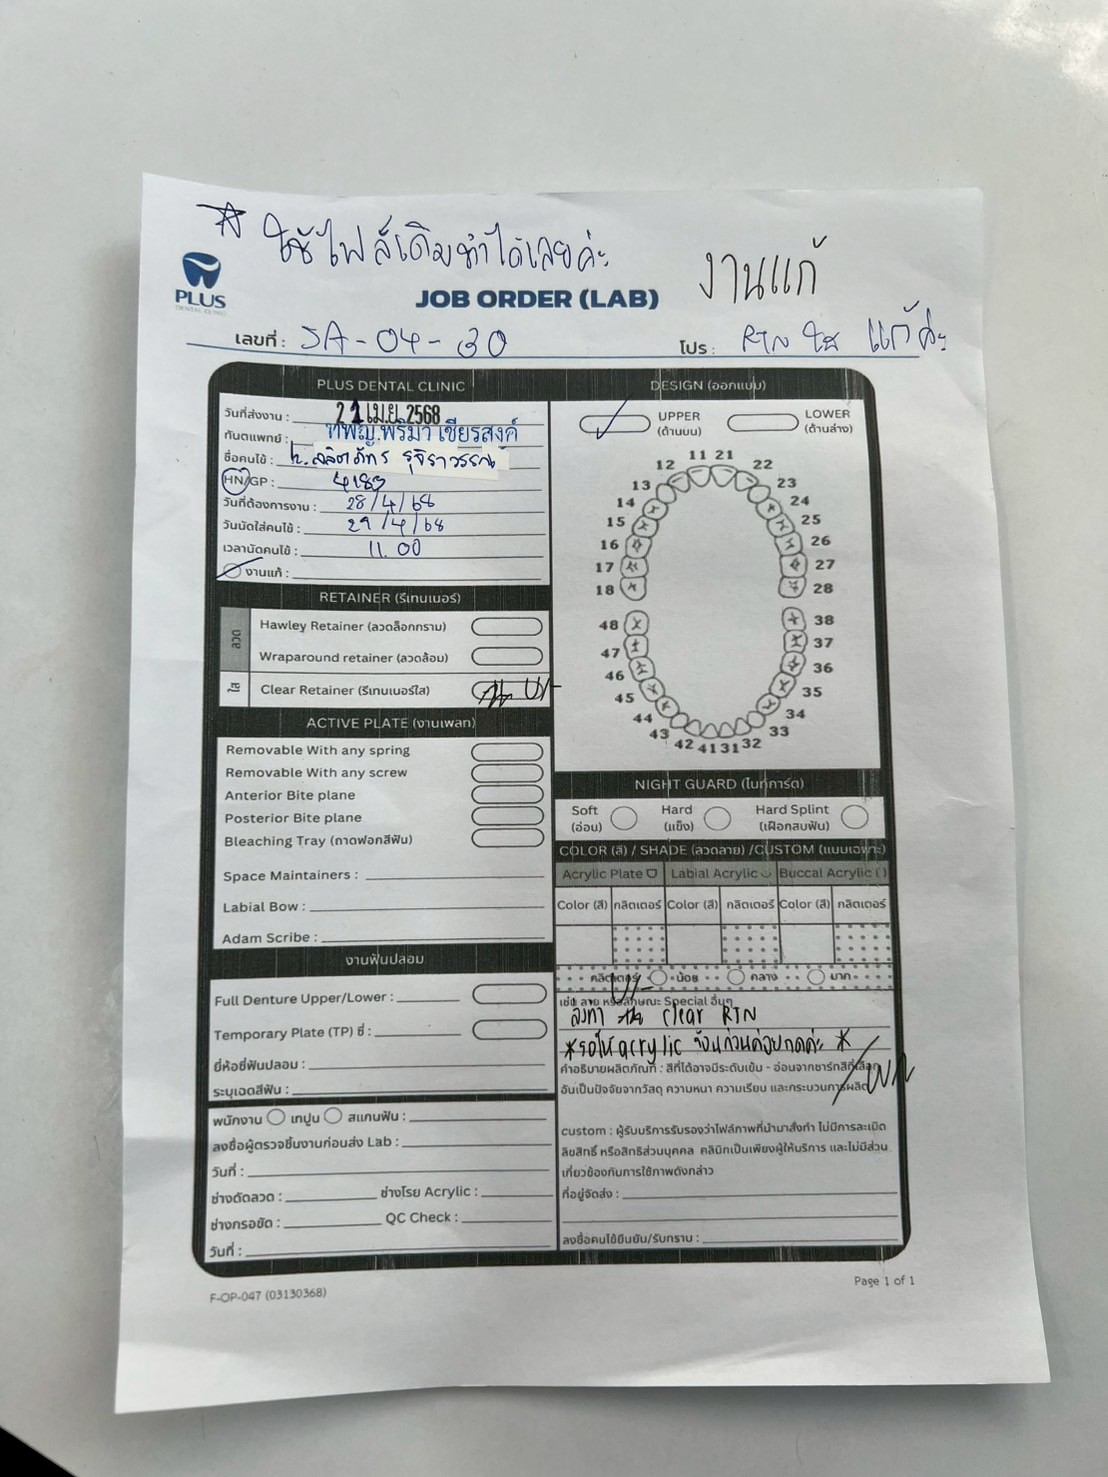 ใช้ไฟล์เดิมทำได้เลยค่ะ
งานแก้
PLUS
DENTAL CLINIC
JOB ORDER (LAB)
เลขที่ : JA-04-30
โปร : RTN ใส แก้ค่ะ
PLUS DENTAL CLINIC
วันที่ส่งงาน : 21 เม.ย. 2568
ทันตแพทย์ : ทพญ.พริมา เชียรสงค์
ชื่อคนไข้ :
HN/GP : 4183
วันที่ต้องการงาน : 28/4/68
วันนัดใส่คนไข้ : 29/4/68
เวลานัดคนไข้ : 11.00
งานแก้ :
RETAINER (รีเทนเนอร์)
ลวด
Hawley Retainer (ลวดล็อกกราม)
Wraparound retainer (ลวดล้อม)
ใส
Clear Retainer (รีเทนเนอร์ใส) บน
ACTIVE PLATE (งานเพลท)
Removable With any spring
Removable With any screw
Anterior Bite plane
Posterior Bite plane
Bleaching Tray (ถาดฟอกสีฟัน)
Space Maintainers :
Labial Bow :
Adam Scribe :
งานฟันปลอม
Full Denture Upper/Lower :
Temporary Plate (TP) ซี่ :
ยี่ห้อซี่ฟันปลอม :
ระบุเฉดสีฟัน :
พนักงาน เทปูน สแกนฟัน :
ลงชื่อผู้ตรวจชิ้นงานก่อนส่ง Lab :
วันที่ :
ช่างดัดลวด : ช่างโรย Acrylic :
ช่างกรอขัด : QC Check :
วันที่ :
DESIGN (ออกแบบ)
UPPER (ด้านบน)
LOWER (ด้านล่าง)
11 21
12 22
13 23
14 24
15 25
16 26
17 27
18 28
48 38
47 37
46 36
45 35
44 34
43 33
42 41 31 32
NIGHT GUARD (ไนท์การ์ด)
Soft (อ่อน)
Hard (แข็ง)
Hard Splint (เฝือกสบฟัน)
COLOR (สี) / SHADE (ลวดลาย) /CUSTOM (แบบเฉพาะ)
Acrylic Plate Labial Acrylic Buccal Acrylic
Color (สี) กลิตเตอร์ Color (สี) กลิตเตอร์ Color (สี) กลิตเตอร์
กลิตเตอร์ น้อย กลาง มาก
เช่น ลาย หรือลักษณะ Special อื่นๆ
บน
สั่งทำ clear RTN
*รอให้ acrylic แข็งก่อนค่อยกดค่ะ *
คำอธิบายผลิตภัณฑ์ : สีที่ได้อาจมีระดับเข้ม - อ่อนจากชาร์ทสีที่เลือก
อันเป็นปัจจัยจากวัสดุ ความหนา ความเรียบ และกระบวนการผลิต
custom : ผู้รับบริการรับรองว่าไฟล์ภาพที่นำมาสั่งทำ ไม่มีการละเมิด
ลิขสิทธิ์ หรือสิทธิส่วนบุคคล คลินิกเป็นเพียงผู้ให้บริการ และไม่มีส่วน
เกี่ยวข้องกับการใช้ภาพดังกล่าว
ที่อยู่จัดส่ง :
ลงชื่อคนไข้ยืนยัน/รับทราบ :
F-OP-047 (03130368)
Page 1 of 1